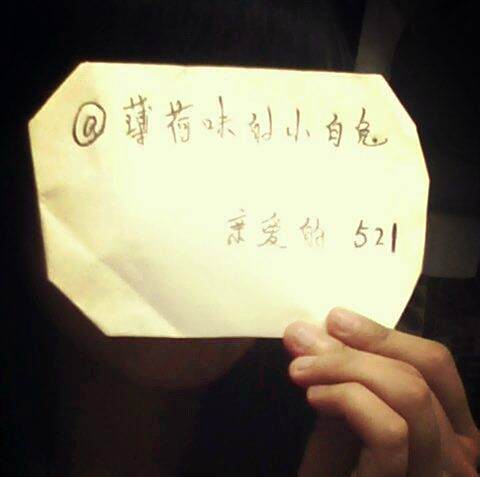 @薄荷味的小白兔
亲爱的 521